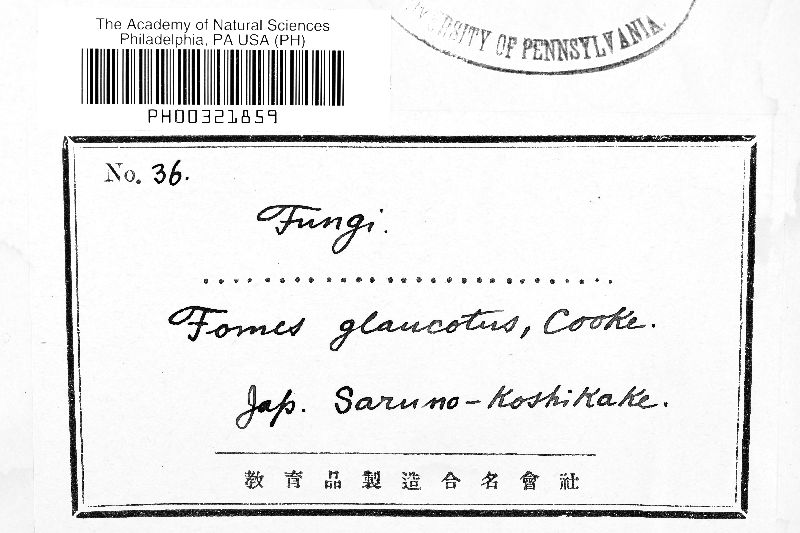 The Academy of Natural Sciences
Philadelphia, PA USA (PH)
PH00321859
OF PENNSYLVANIA.
No. 36.
Fungi.
Fomes glaucotus, Cooke.
Jap. Saruno-Koshikake.
教育品製造合名會社